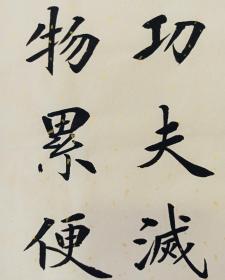 功夫滅
物累便